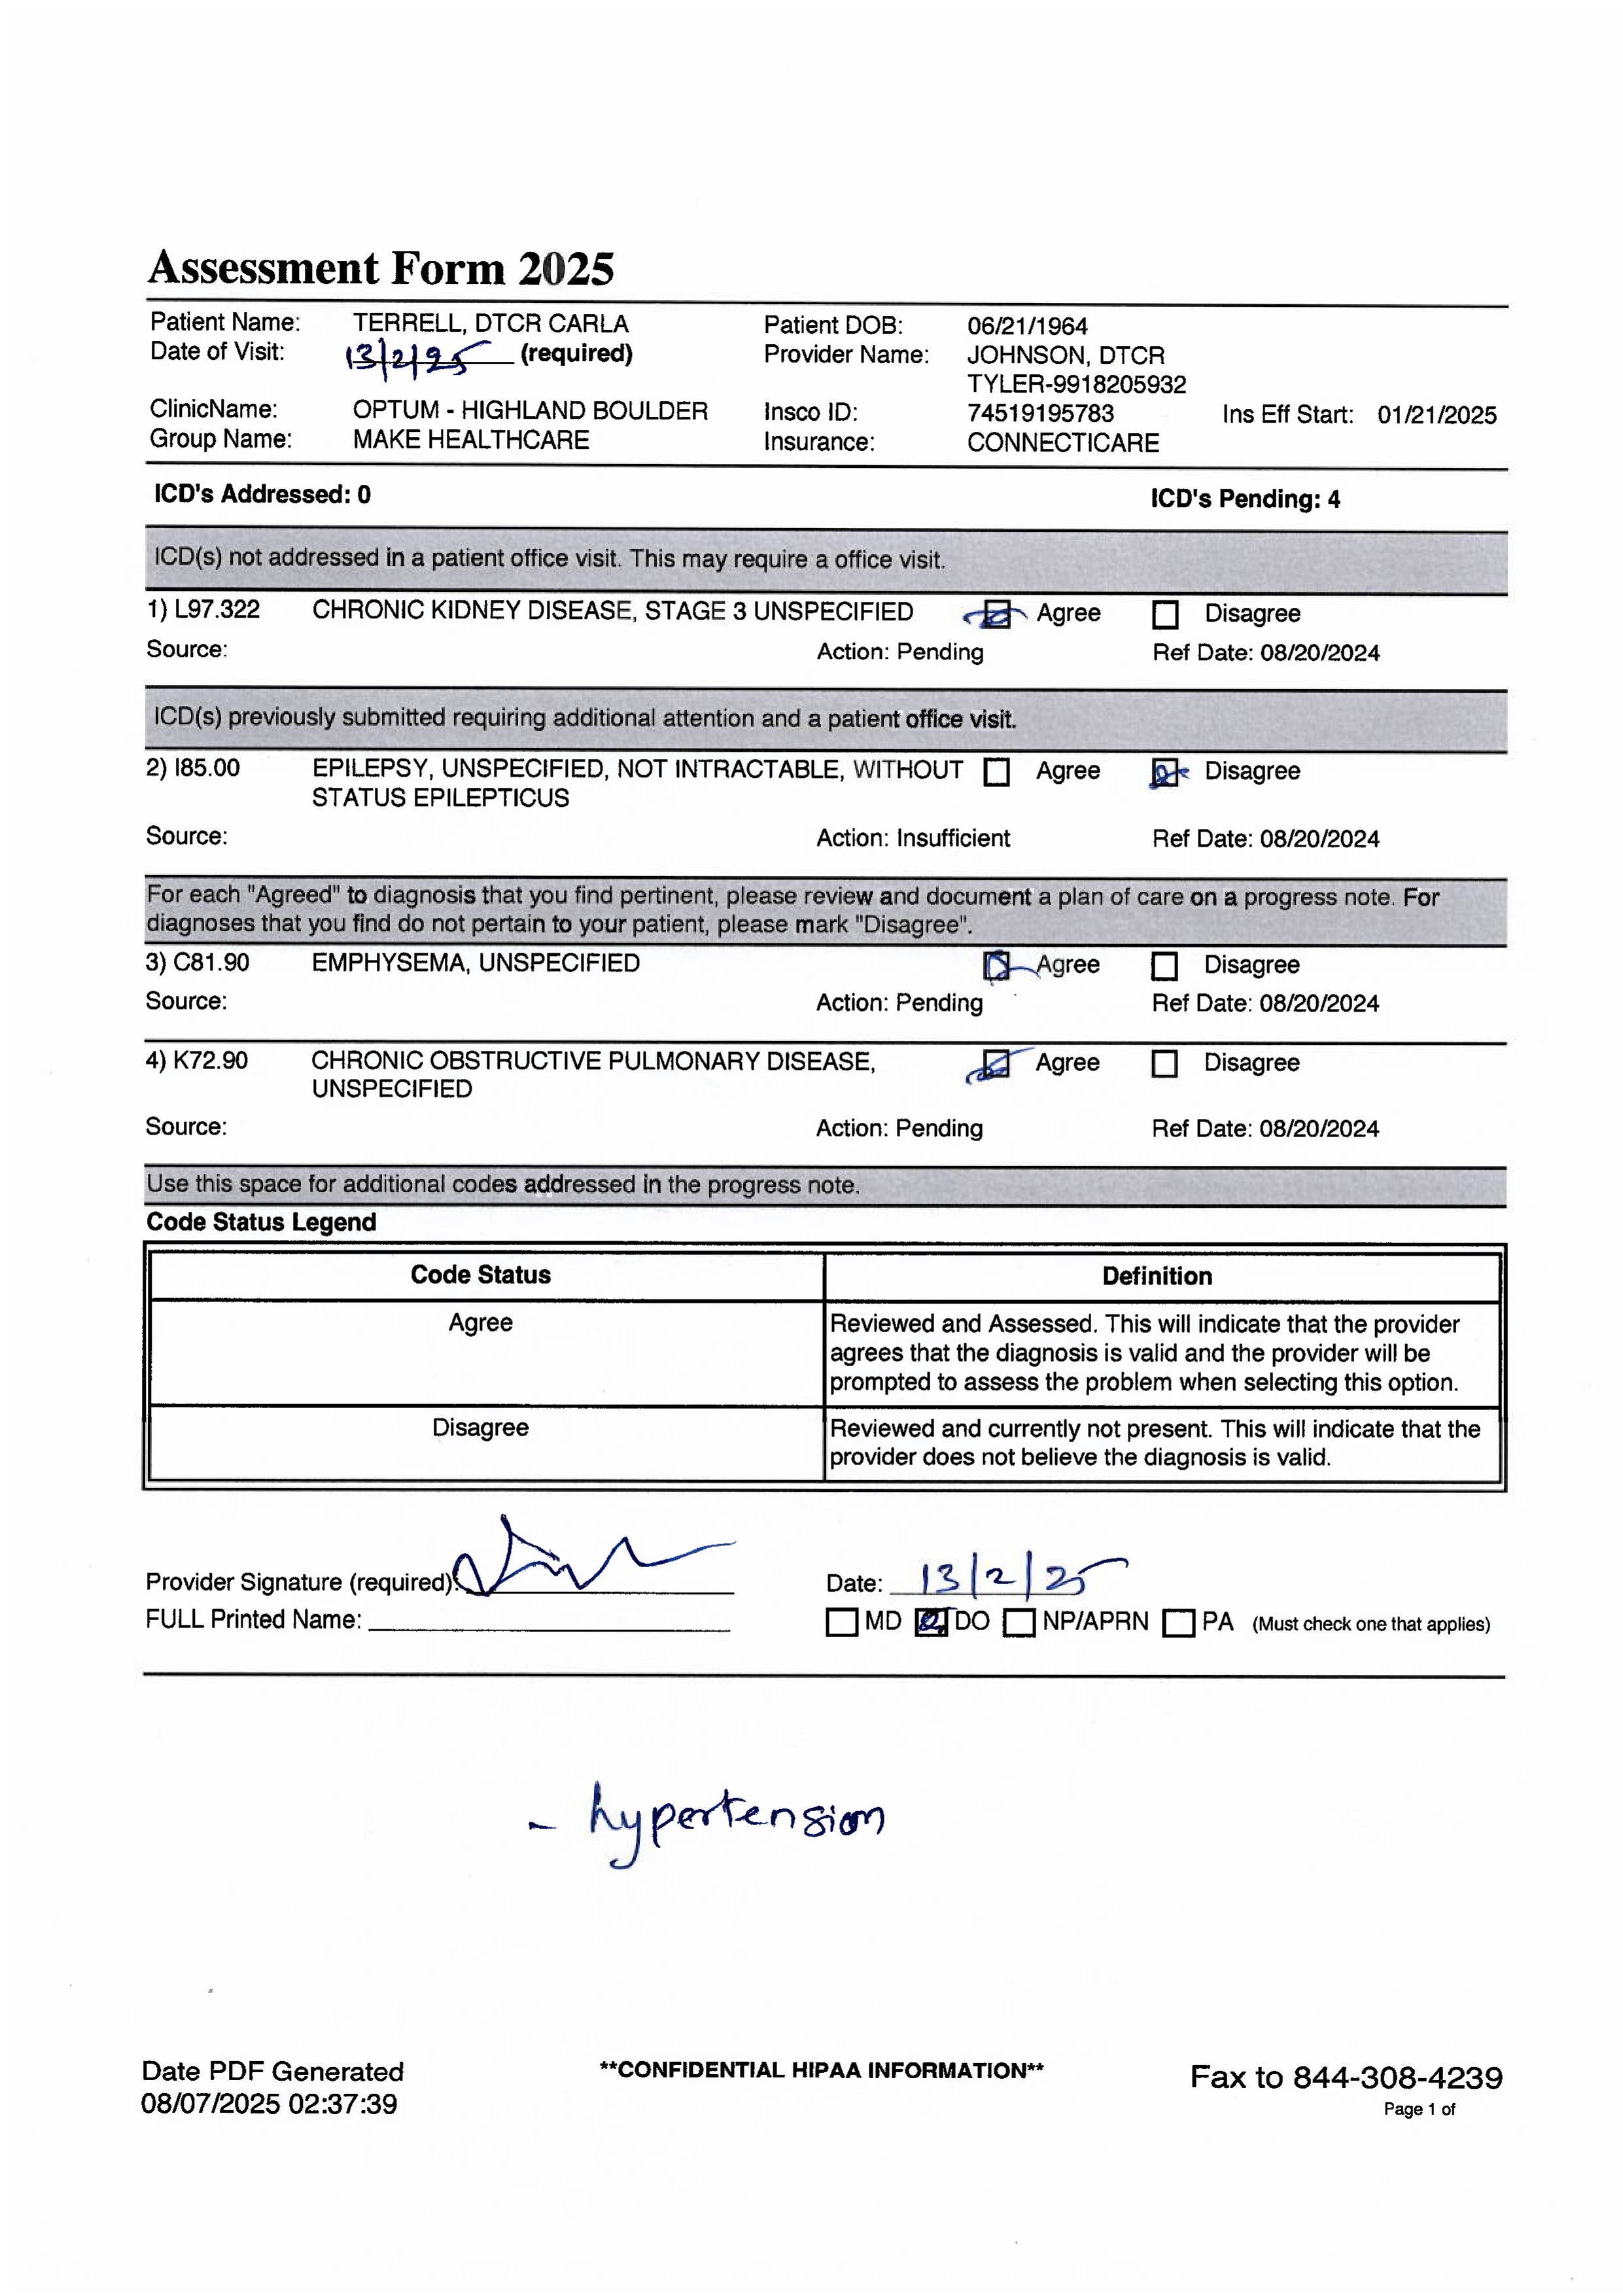 Assessment Form 2025
Patient Name: TERRELL, DTCR CARLA Patient DOB: 06/21/1964
Date of Visit: 13/2/25 (required) Provider Name: JOHNSON, DTCR
TYLER-9918205932
ClinicName: OPTUM - HIGHLAND BOULDER Insco ID: 74519195783 Ins Eff Start: 01/21/2025
Group Name: MAKE HEALTHCARE Insurance: CONNECTICARE
ICD's Addressed: 0 ICD's Pending: 4
ICD(s) not addressed in a patient office visit. This may require a office visit.
1) L97.322 CHRONIC KIDNEY DISEASE, STAGE 3 UNSPECIFIED Agree Disagree
Source: Action: Pending Ref Date: 08/20/2024
ICD(s) previously submitted requiring additional attention and a patient office visit.
2) I85.00 EPILEPSY, UNSPECIFIED, NOT INTRACTABLE, WITHOUT Agree Disagree
STATUS EPILEPTICUS
Source: Action: Insufficient Ref Date: 08/20/2024
For each "Agreed" to diagnosis that you find pertinent, please review and document a plan of care on a progress note. For
diagnoses that you find do not pertain to your patient, please mark "Disagree".
3) C81.90 EMPHYSEMA, UNSPECIFIED Agree Disagree
Source: Action: Pending Ref Date: 08/20/2024
4) K72.90 CHRONIC OBSTRUCTIVE PULMONARY DISEASE, Agree Disagree
UNSPECIFIED
Source: Action: Pending Ref Date: 08/20/2024
Use this space for additional codes addressed in the progress note.
Code Status Legend
Code Status Definition
Agree Reviewed and Assessed. This will indicate that the provider
agrees that the diagnosis is valid and the provider will be
prompted to assess the problem when selecting this option.
Disagree Reviewed and currently not present. This will indicate that the
provider does not believe the diagnosis is valid.
Provider Signature (required): Date: 13/2/25
FULL Printed Name: MD DO NP/APRN PA (Must check one that applies)
- hypertension
Date PDF Generated **CONFIDENTIAL HIPAA INFORMATION** Fax to 844-308-4239
08/07/2025 02:37:39 Page 1 of